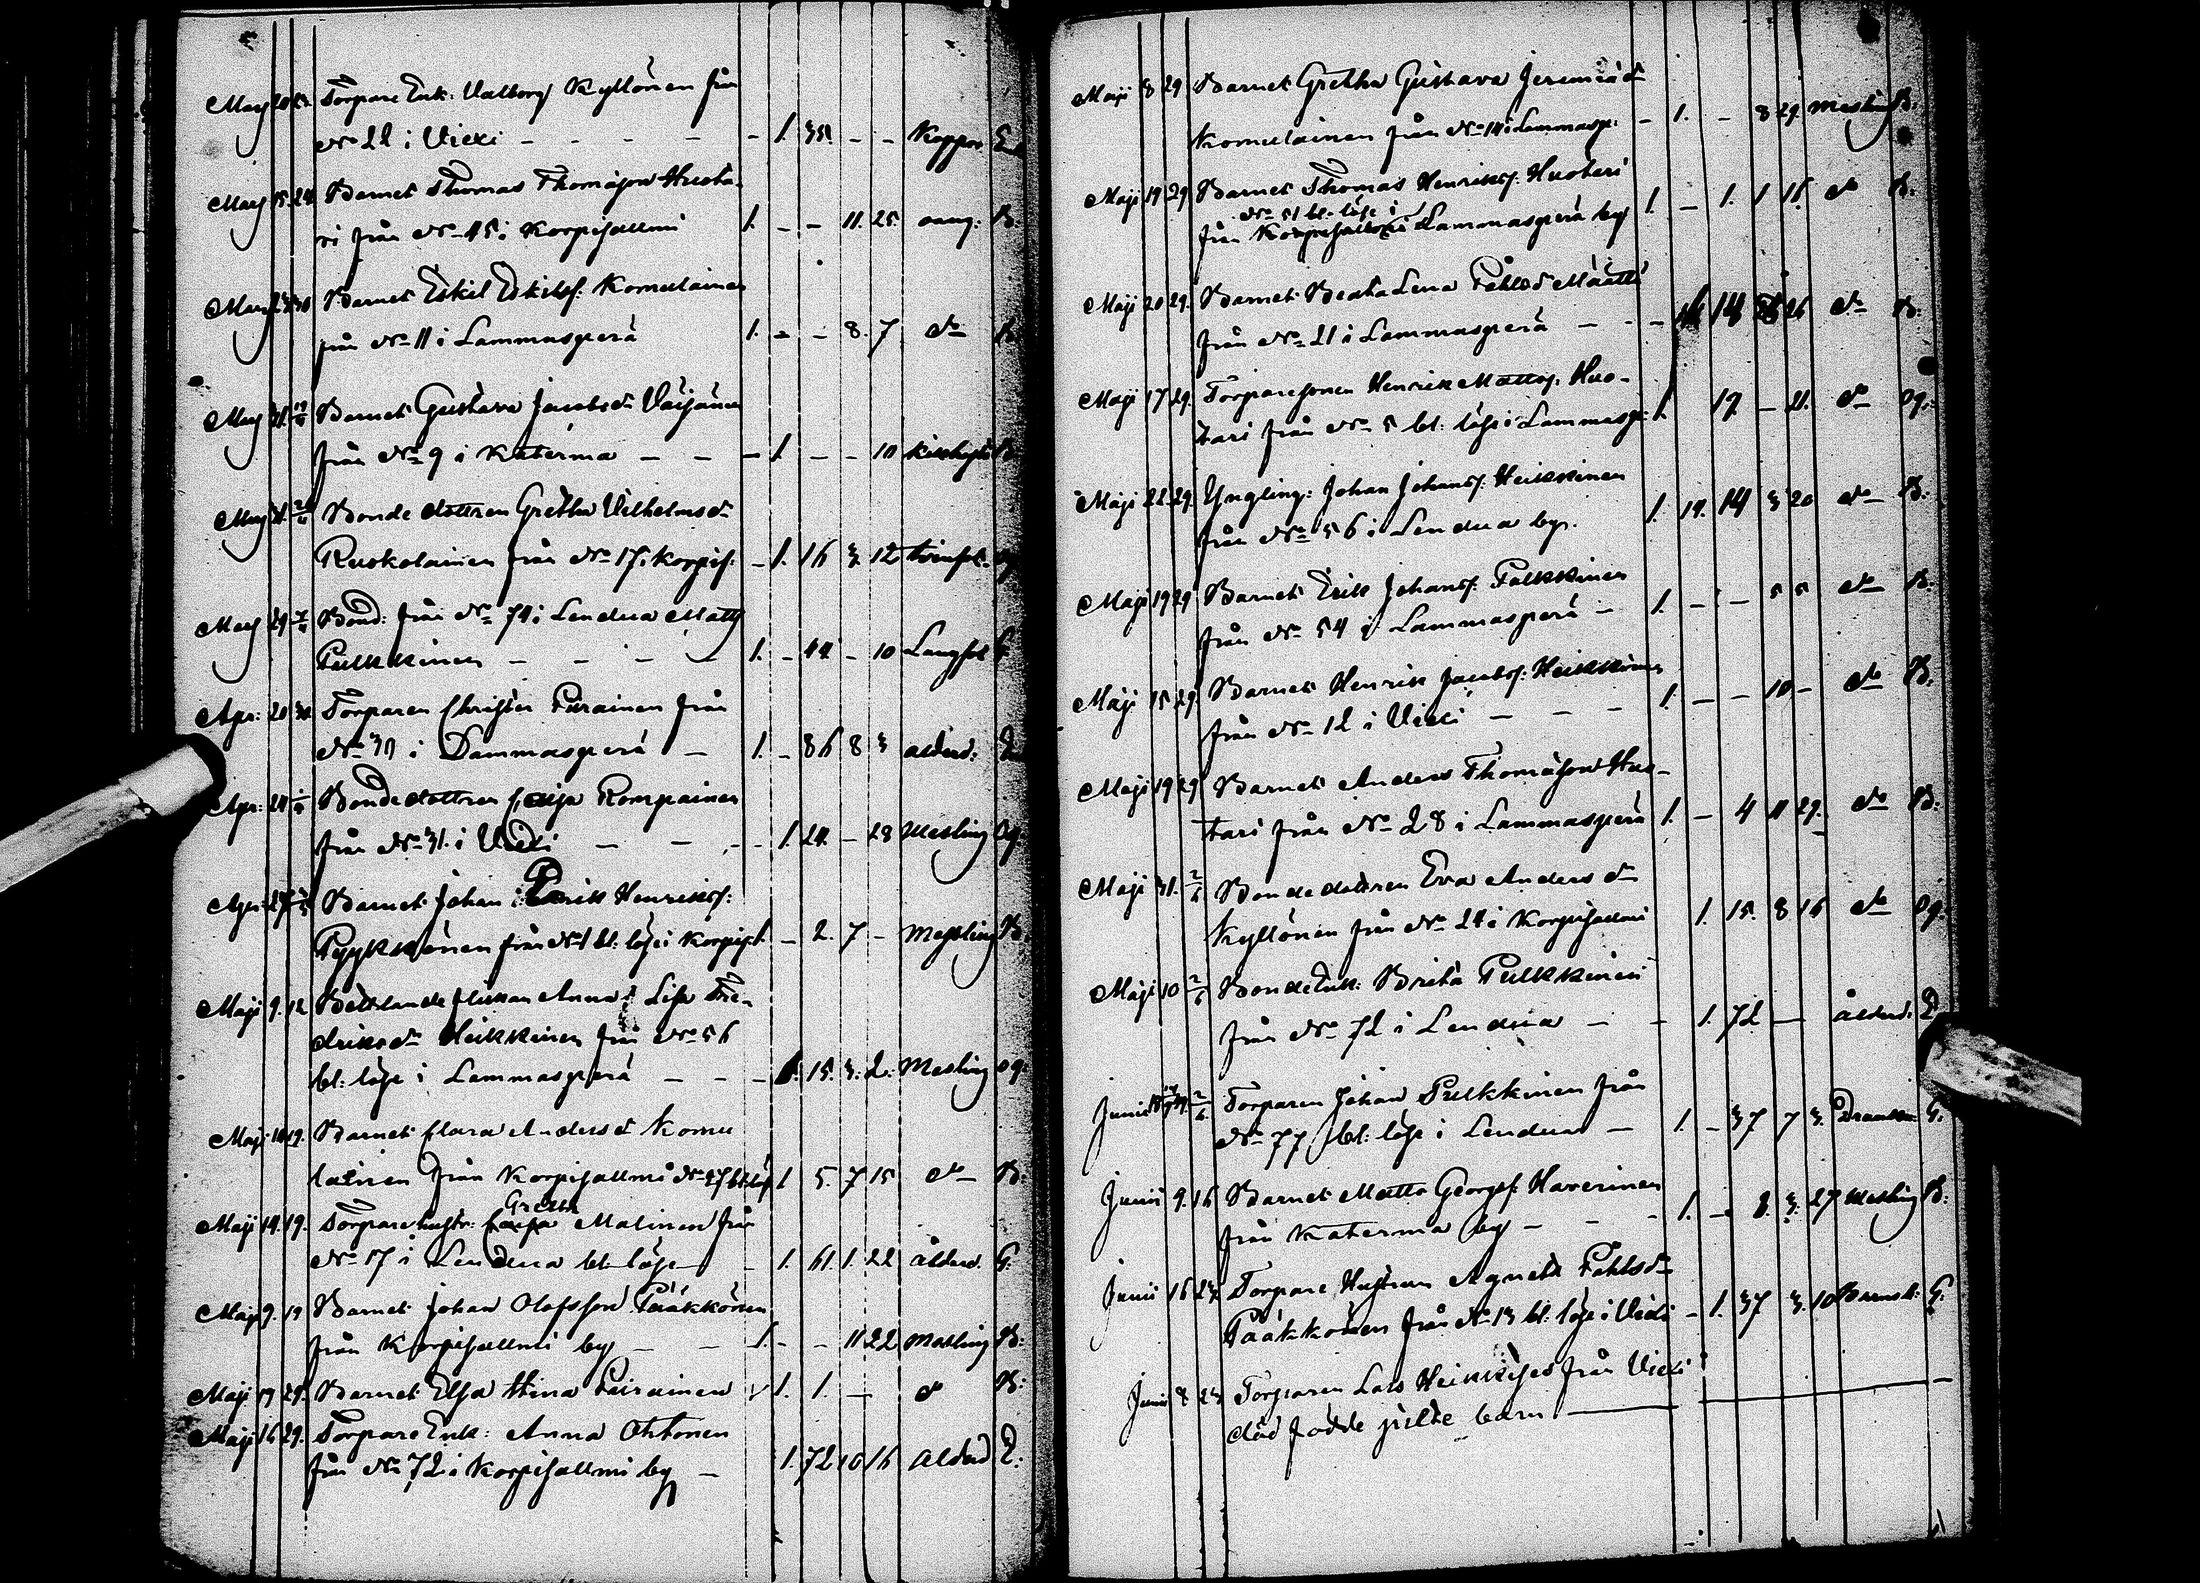 Torpare Enk: Valborg Kyllönen från
No 22 i Viexi - - - - 1. 35. - - Koppor E.
Mars 15. 24. Barnet Thomas Thomasson Huota-
ri från No 45 i Korpisallmi 1. - - 11. 25. B.
Barnet Eskil Eskilss. Komulainen
från No 11 i Lammasperä 1. - - 8. 7. do B.
Barnet Gustava Jacobsdr Väisänen
från No 9 i Katerma - - - 1. - - 10 B.
Bonde dottren Gretha Vilhelmsdr
Ruskolainen från No 17 i Korpis. - 1. 16 3. 12
Bond. från No 74 i Lendua Matts
Pulkkinen - - - - 1. - 44 - 10 Lungsot G.
Apr: 20 30 Torparen Christer Piirainen från
No 37 i Lammasperä - 1. - 86 8 3 alderd: E.
Apr: 24 Bondedottren Caisa Rompainen
från No 31. i Viexi - - - 1. 24. - 28 Messling Og.
Apr: 27 Barnet Johan Erik Henrikss:
Pyykkönen från No 1 bl: löse i Korpis: 1. - 2. 7 - Messling B.
Maji 9. 12 Bettlande flickan Anna Lisa Fre-
driksdr Heikkinen från No 56
bl: löse i Lammasperä - - - 1. 15. 3. 2. Messling og:
Maji 19. Barnet Clara Andersdr Komu
lainen från Korpisallmi No 27 bl: lös 1 5. 7 15 do B:
Gretha
Maji 14. 19. Torpare hustr: Caisa Malinen från
No 17 i Lendua bl. löse - 1. 61. 1. 22 Ålderd. G.
Maji 9. 19 Barnet Johan Olofsson Pääkkönen
från Korpisallmi by - - 1. - - 11 22 Messling B:
Maji 19 29. Barnet Elsa Stina Piirainen 1. 1. - do B:
Maji 16 29. Torpare Enk: Anna Ohtonen
från No 72 i Korpisallmi by - 1. 72 10 16 Alderd E.
Maji 8 29 Barnet Gretha Gustava Jeremiädr
Komulainen från No 14 i Lammasp: - 1. - 8 29. Messling B.
Maji 19 29 Barnet Thomas Henrikss. Huotari
No 51 bl. löse i
från Korpisallmi Lammasperä by 1. - 1. 1 18. do B.
Maji 20 29. Barnet Beata Lena Påhlsdr Määttä
från No 21 i Lammasperä - - - 26 do B.
Maji 17 29. Torparesonen Henrik Mattss. Huo-
tari från No 5 bl: löse i Lammasp: 1. 17. - 21. do Og.
Maji 22 29. Yngling: Johan Johanss. Heikkinen
från No 56 i Lendua by. 1. 14 3 20 do B.
Maji 19 29 Barnet Erik Johanss. Pulkkinen
från No 54 i Lammasperä - 1. - - 5 5 do B.
Maji 15 29. Barnet Henrik Jacobss: Heikkinen
från No 12 i Viexi - - - 1. - - 10 - do B.
Maji 19 29 Barnet Anders Thomasson Huo-
tari från No 28 i Lammasperä 1. - 4 11 29. do B:
Maji 31. 2/6 Bondedottren Eva Andersdr
Kyllönen från No 24 i Korpisallmi 1. 15. 8 16 do Og.
Maji 10 2/6 Bonde Enk: Brita Pulkkinen
från No 72 i Lendua - - 1. 72. - Ålderd. E.
Torparen Johan Pulkkinen från
No 77 bl: löse i Lendua - 1. - 37 7 3. G.
Junii 9. 16 Barnet Matts Georgss. Haverinen
från Katerma by - - - 1. - 8. 3. 27 Messling B:
Junii 16 23. Torpare Hustrun Agneta Påhlsdr
Pääkkönen från No 13 bl. löse i Viexi - 1. 37 3. 10 Barnsb: G.
Junii 8 23 Torparen Lars Heikkises från Viexi
död födde